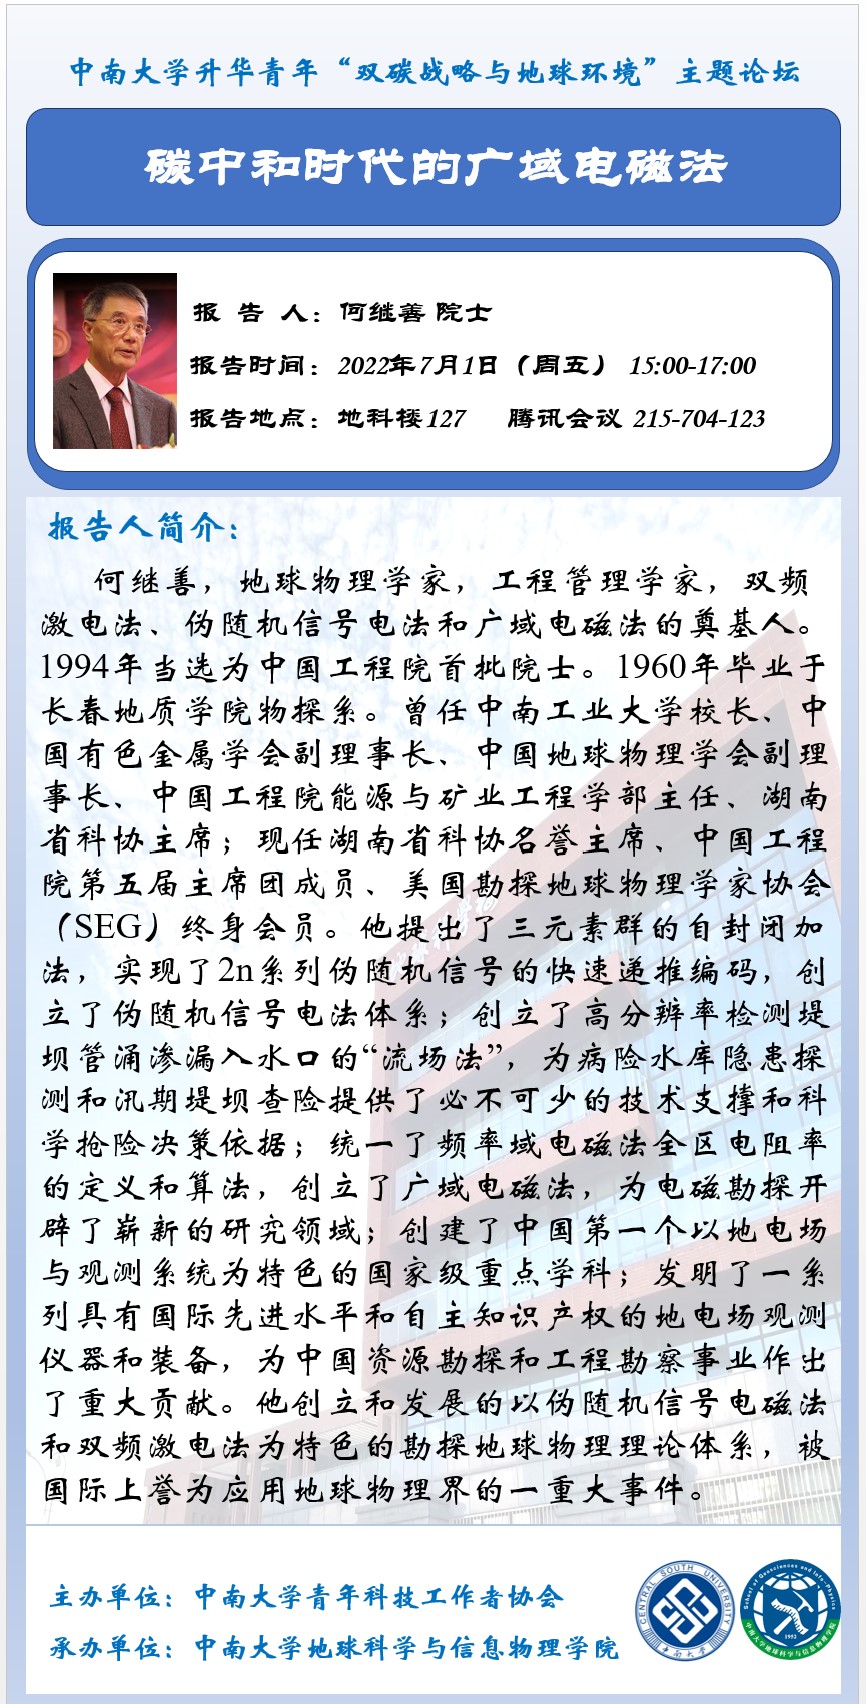 中南大学升华青年“双碳战略与地球环境”主题论坛
碳中和时代的广域电磁法
报 告 人：何继善 院士
报告时间：2022年7月1日（周五） 15:00-17:00
报告地点：地科楼127 腾讯会议 215-704-123
报告人简介：
何继善，地球物理学家，工程管理学家，双频
激电法、伪随机信号电法和广域电磁法的奠基人。
1994年当选为中国工程院首批院士。1960年毕业于
长春地质学院物探系。曾任中南工业大学校长、中
国有色金属学会副理事长、中国地球物理学会副理
事长、中国工程院能源与矿业工程学部主任、湖南
省科协主席；现任湖南省科协名誉主席、中国工程
院第五届主席团成员、美国勘探地球物理学家协会
（SEG）终身会员。他提出了三元素群的自封闭加
法，实现了2n系列伪随机信号的快速递推编码，创
立了伪随机信号电法体系；创立了高分辨率检测堤
坝管涌渗漏入水口的“流场法”，为病险水库隐患探
测和汛期堤坝查险提供了必不可少的技术支撑和科
学抢险决策依据；统一了频率域电磁法全区电阻率
的定义和算法，创立了广域电磁法，为电磁勘探开
辟了崭新的研究领域；创建了中国第一个以地电场
与观测系统为特色的国家级重点学科；发明了一系
列具有国际先进水平和自主知识产权的地电场观测
仪器和装备，为中国资源勘探和工程勘察事业作出
了重大贡献。他创立和发展的以伪随机信号电磁法
和双频激电法为特色的勘探地球物理理论体系，被
国际上誉为应用地球物理界的一重大事件。
主办单位：中南大学青年科技工作者协会
承办单位：中南大学地球科学与信息物理学院
CENTRAL SOUTH UNIVERSITY
中南大学
School of Geosciences and Info-Physics
1952
中南大学地球科学与信息物理学院